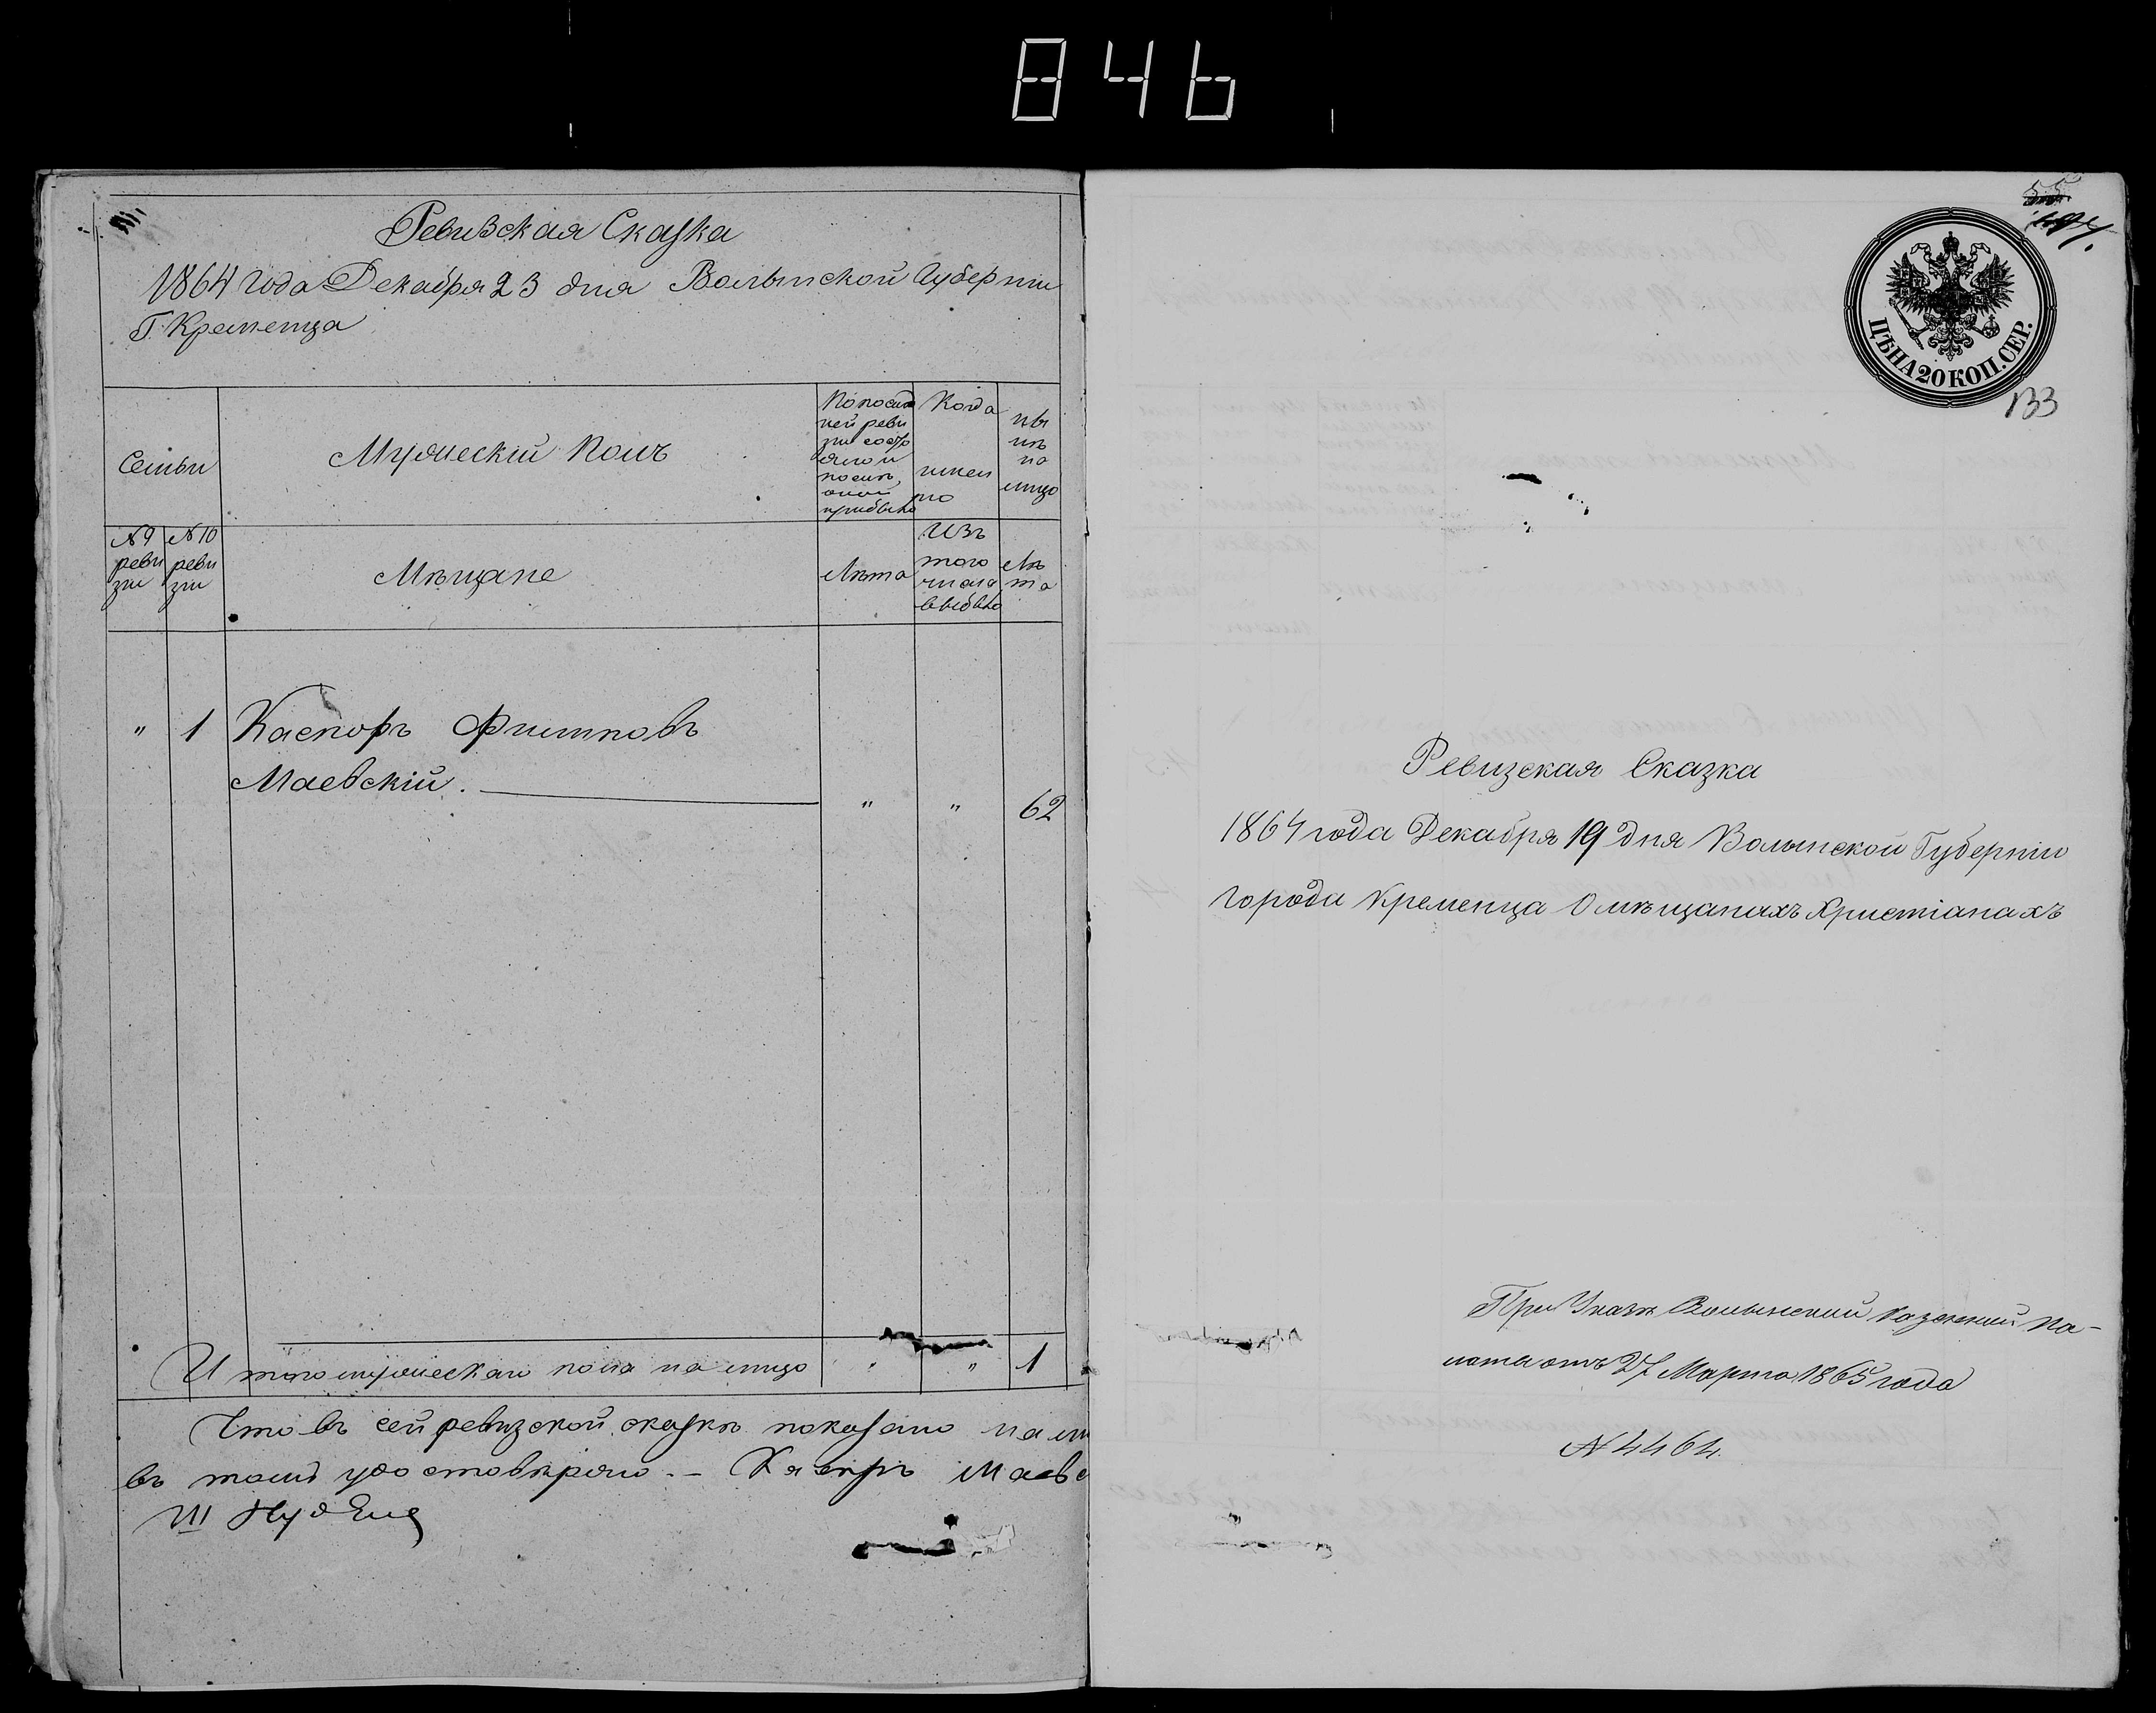 846
Ревизская Сказка
1864 года Декабря 23 дня Волынской Губерніи
Г. Кременца
Семьи
Мужескій Полъ
По послѣд
ней реви
зіи состо
яло и
послѣ
оной
прибыло
Когда
именно
Ны
нѣ
на
лицо
№ 9
реви
зіи
№ 10
реви
зіи
Мѣщане
Лѣта
Изъ
того
числа
выбыло
Лѣ
та
" 1 Каспоръ
Маевскій. " " 62
Итого мужескаго пола на лицо " " 1
Что въ сей ревизской сказкѣ показано на ли
въ томъ удостовѣряю. — Маевс
55
133
ЦѢНА 20 КОП. СЕР.
Ревизская Сказка
1864 года Декабря 19 дня Волынской Губерніи
города Кременца О мѣщанахъ Христіанахъ
При Указѣ Волынской Казенной Па-
латы отъ 27 Марта 1865 года
№ 4464.